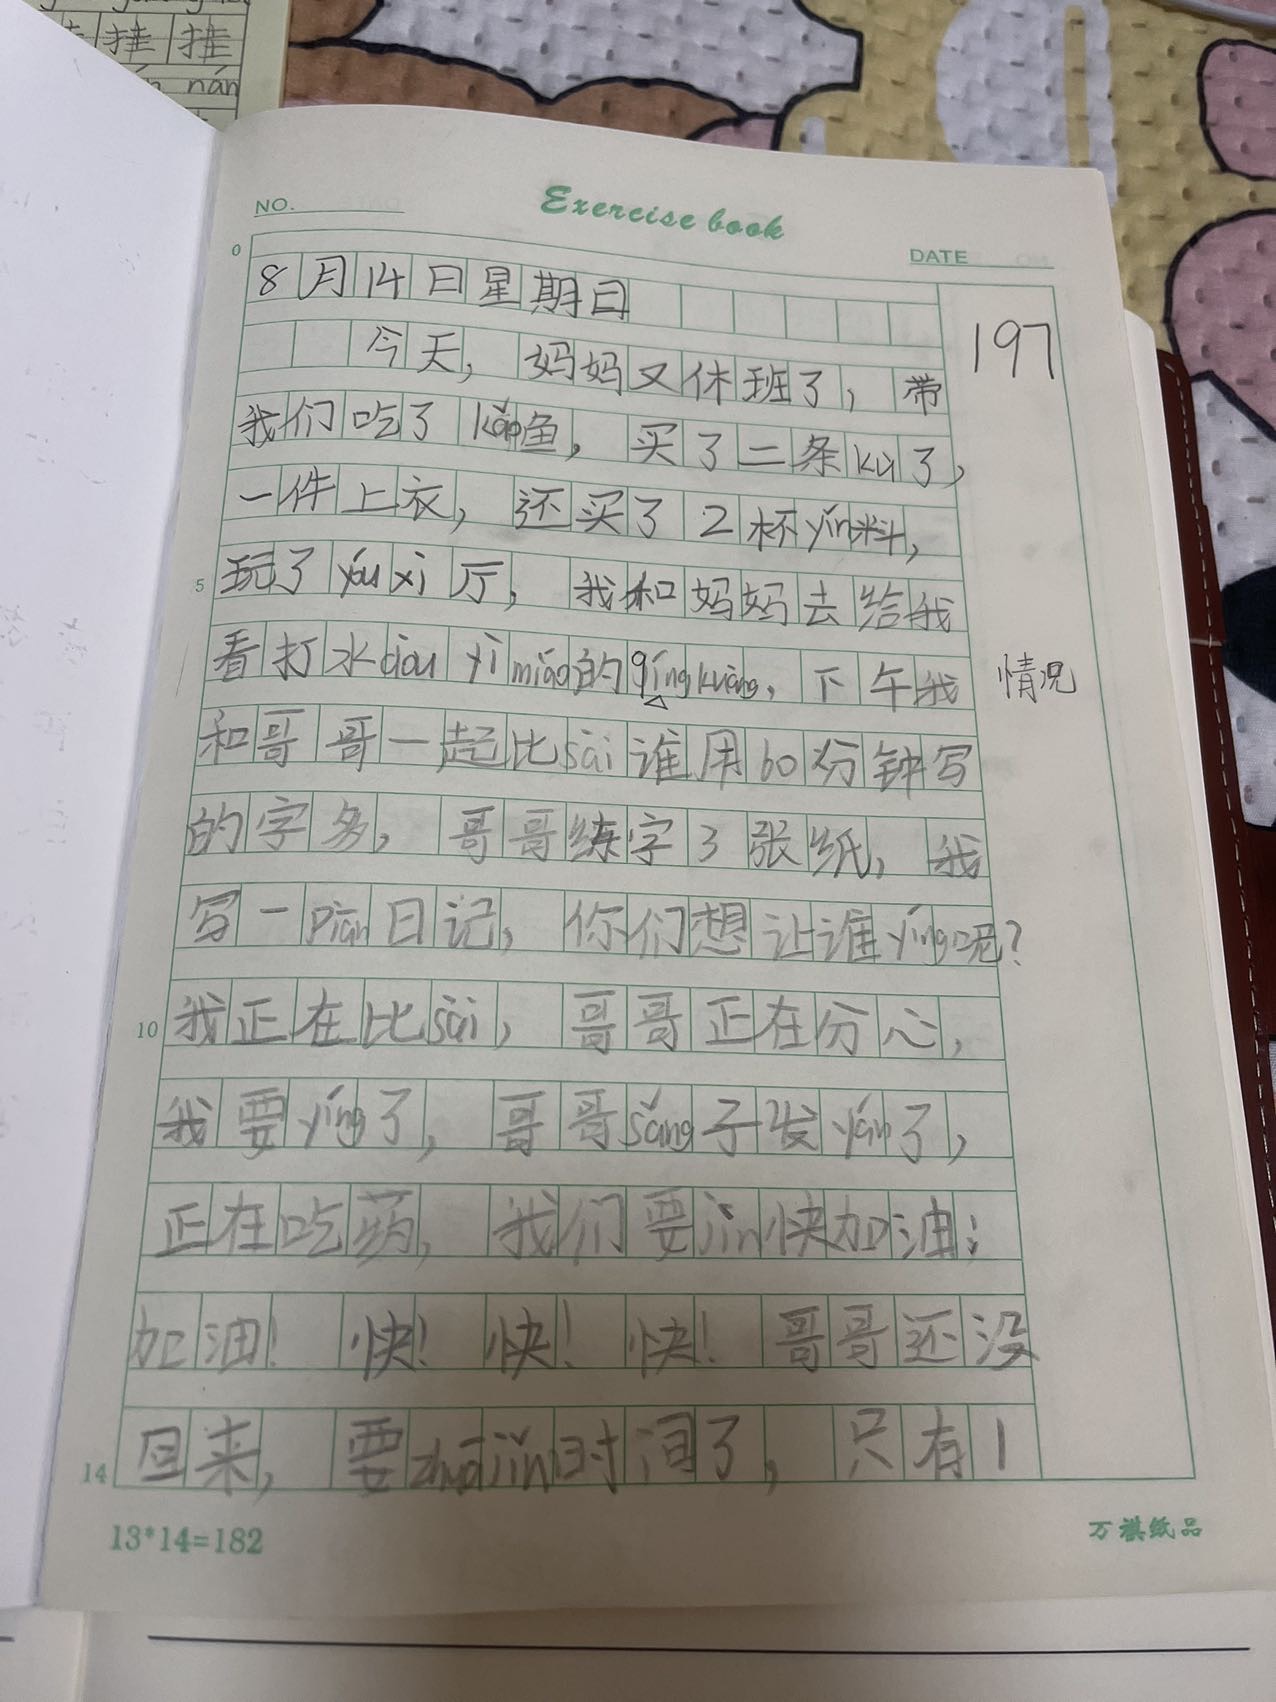 挂 挂
nán
NO.
Exercise book
DATE
0
8月14日星期日
197
今天，妈妈又休班了，带
我们吃了kǎo鱼，买了二条kù了，
一件上衣，还买了2杯yǐn料，
5
玩了yóu xì厅，我和妈妈去给我
看打水dòu yì miáo的qíng kuàng，下午我
情况
和哥哥一起比sài谁用60分钟写
的字多，哥哥练字3张纸，我
写一piān日记，你们想让谁yíng呢？
10
我正在比sài，哥哥正在分心，
我要yíng了，哥哥sǎng子发yán了，
正在吃药，我们要jǐn快加油；
加油！快！快！快！哥哥还没
回来，要zhuā jǐn时间了，只有1
14
13*14=182
万祺纸品